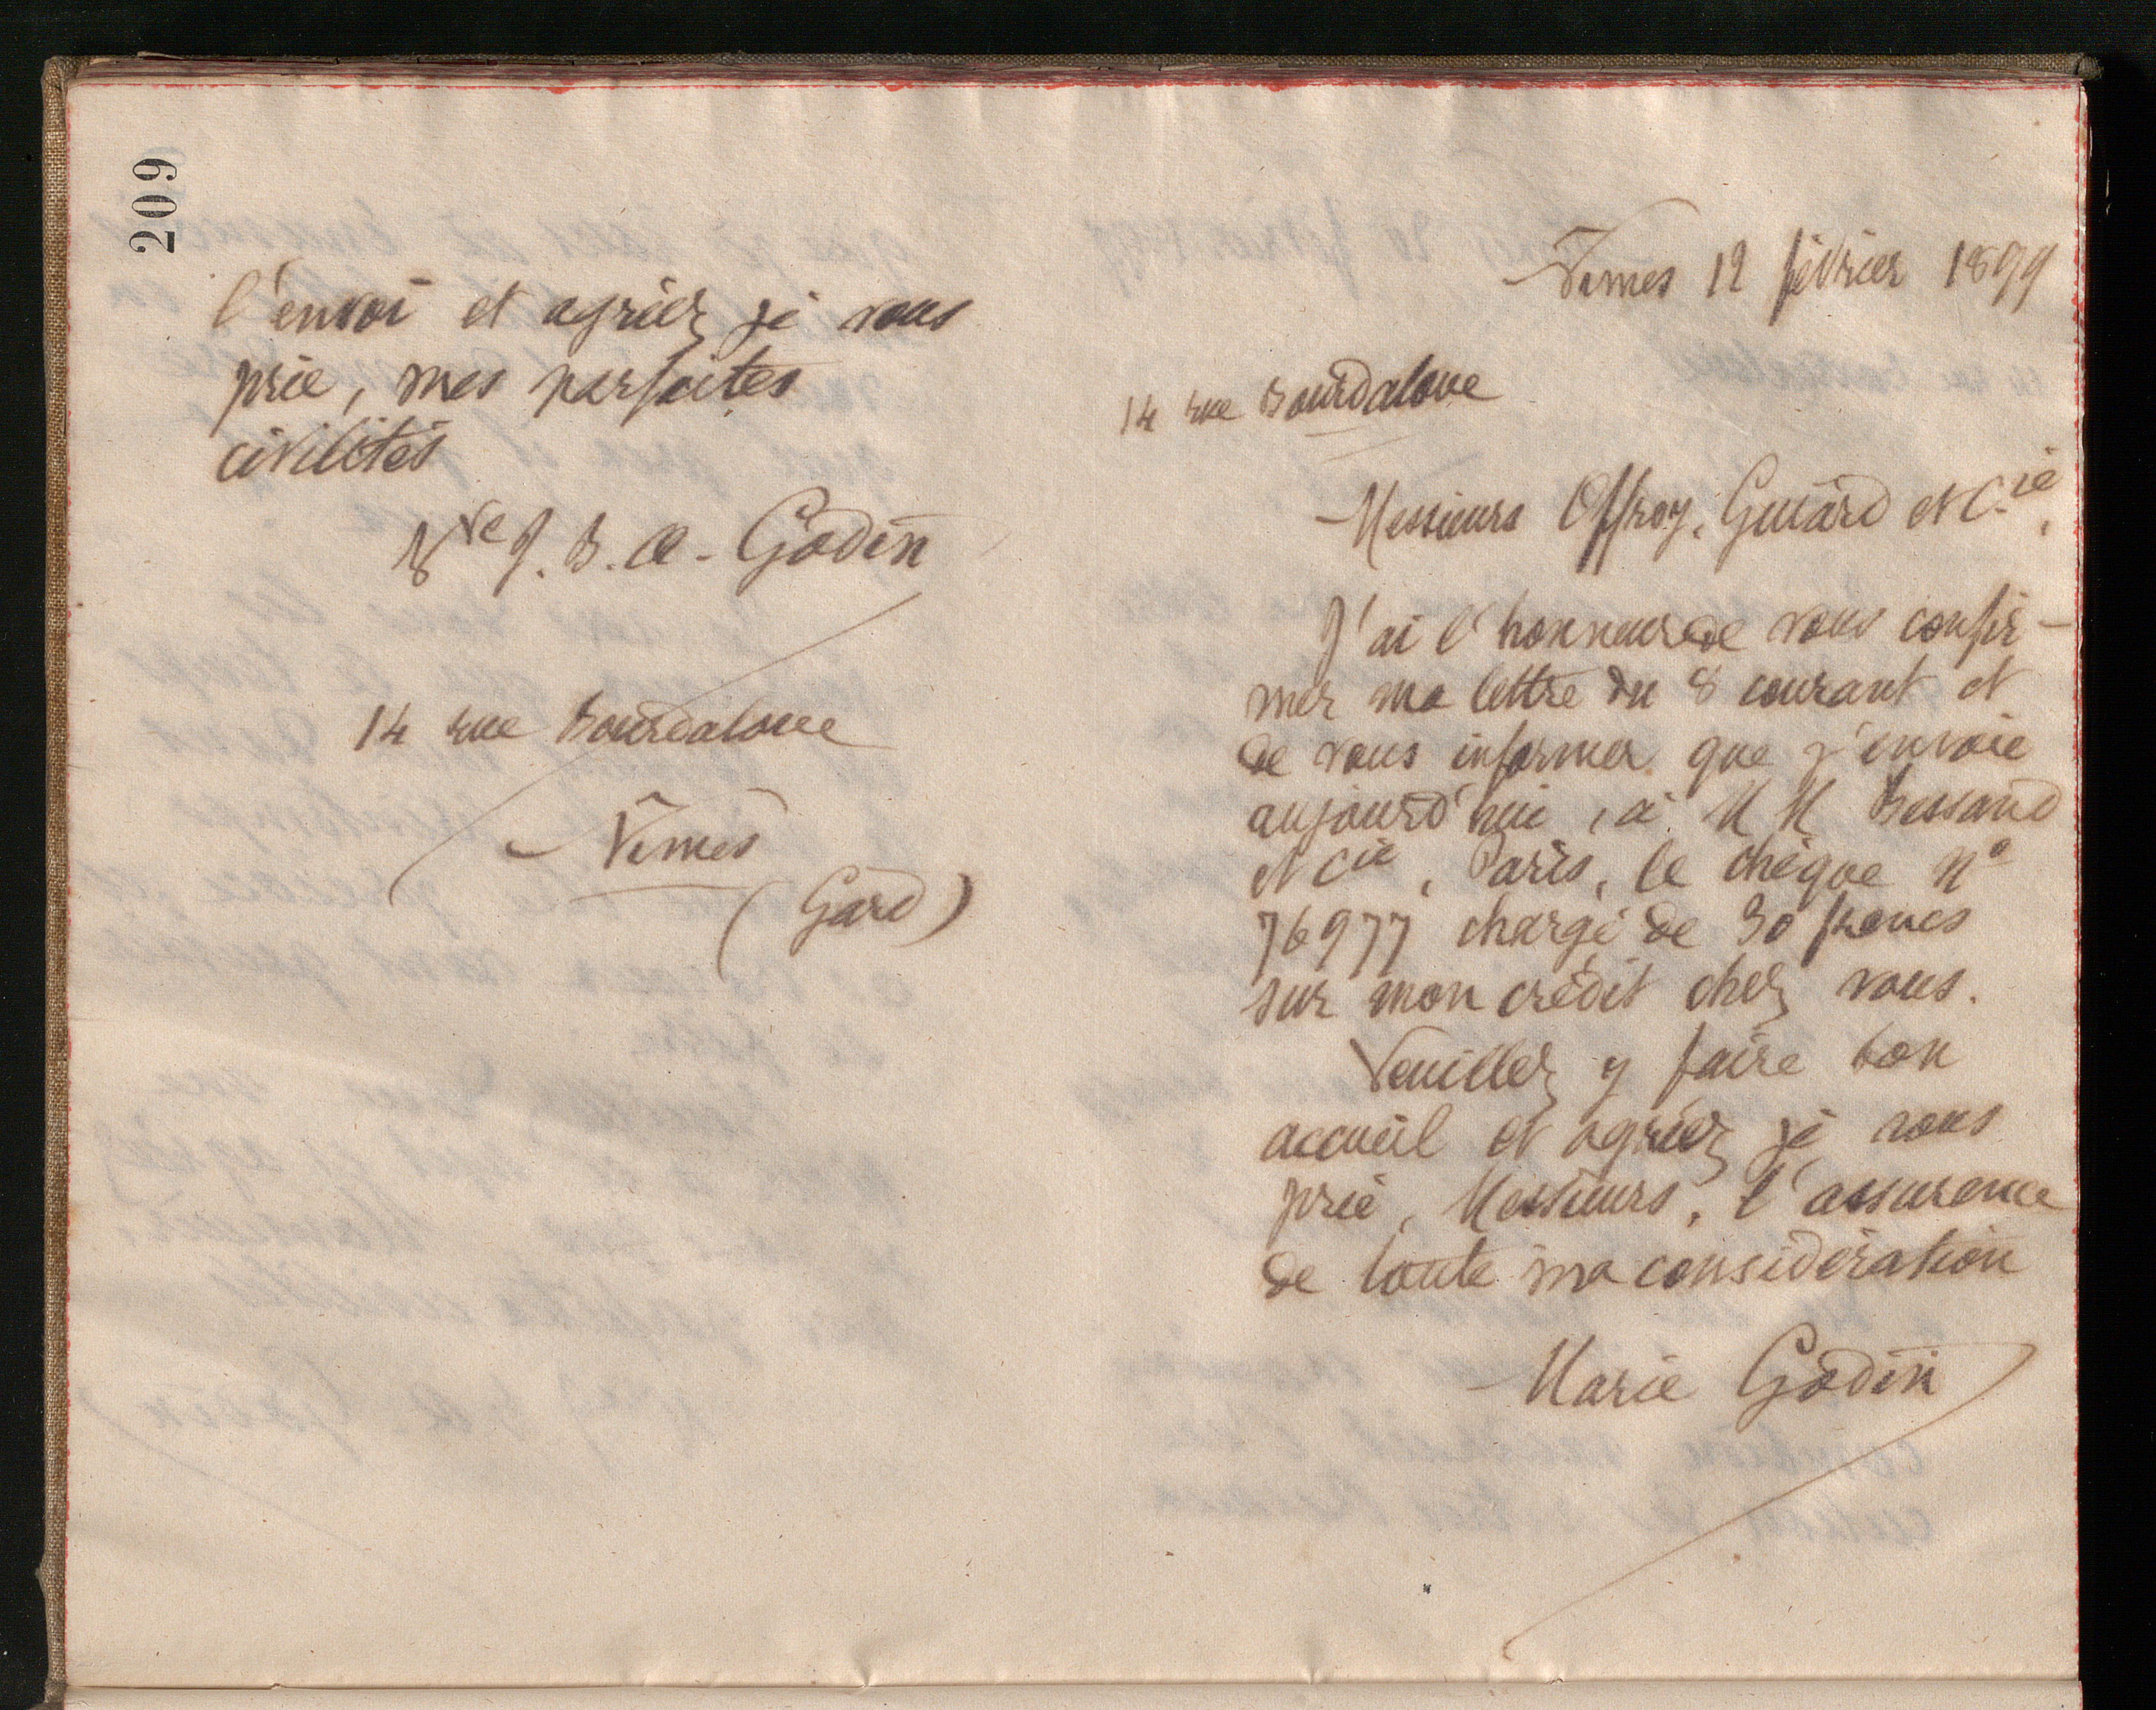 209
l'envoi et agréez, je vous
prie, mes parfaites
civilités
Vve J. B. A. Godin
14 rue Bourdaloue
Nîmes
(Gard)
Nîmes 12 février 1899
14 rue Bourdaloue
Messieurs Offroy, Guiard et Cie,
J'ai l'honneur de vous confir-
mer ma lettre du 8 courant et
de vous informer que j'envoie
aujourd'hui, à MM Bessand
et Cie, Paris, le chèque No
76977 chargé de 30 francs
sur mon crédit chez vous.
Veuillez y faire bon
accueil et agréez je vous
prie, Messieurs, l'assurance
de toute ma considération
Marie Godin